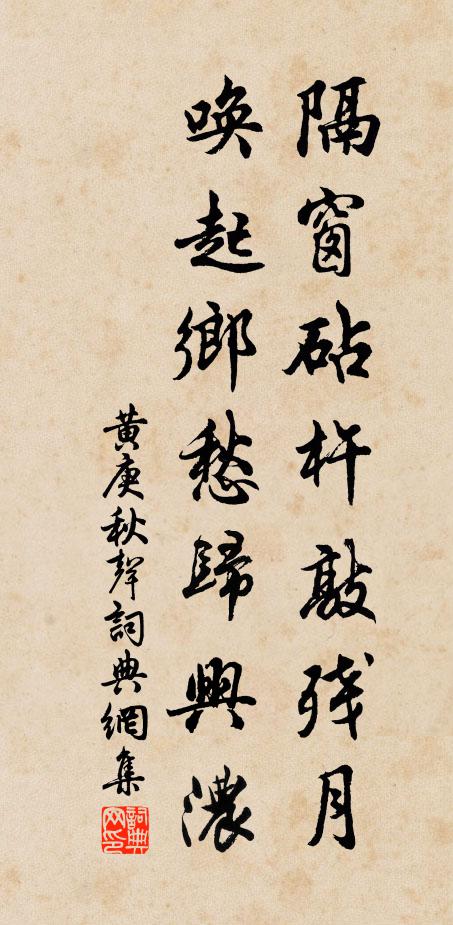 隔窗砧杵敲残月
喚起鄉愁歸興濃
黃庚秋聲詞典網集
詞典網印